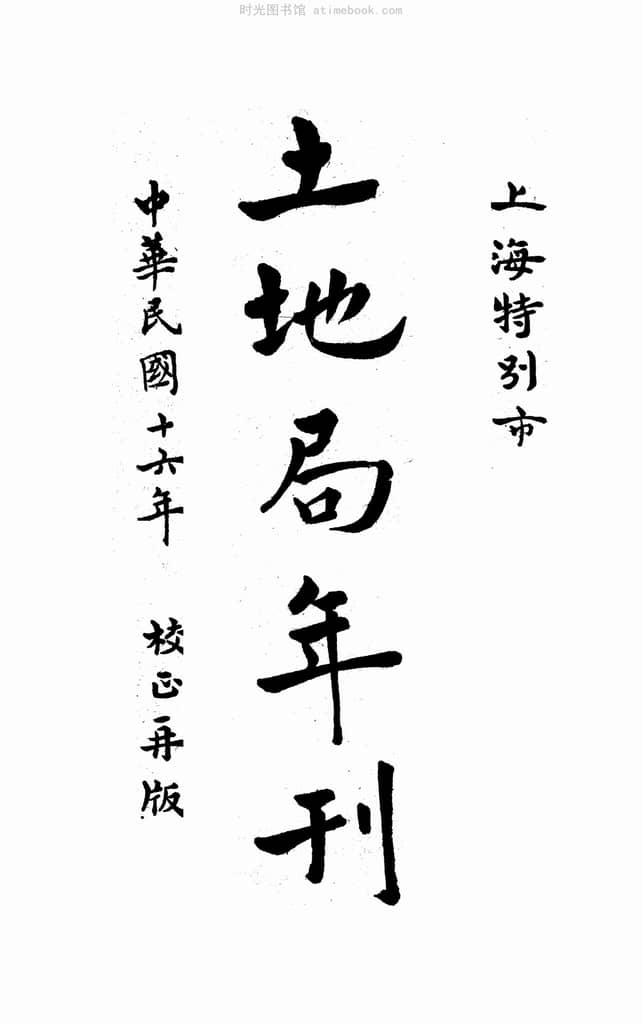 时光图书馆 atimebook.com
上海特别市
土地局年刊
中華民國十六年 校正再版